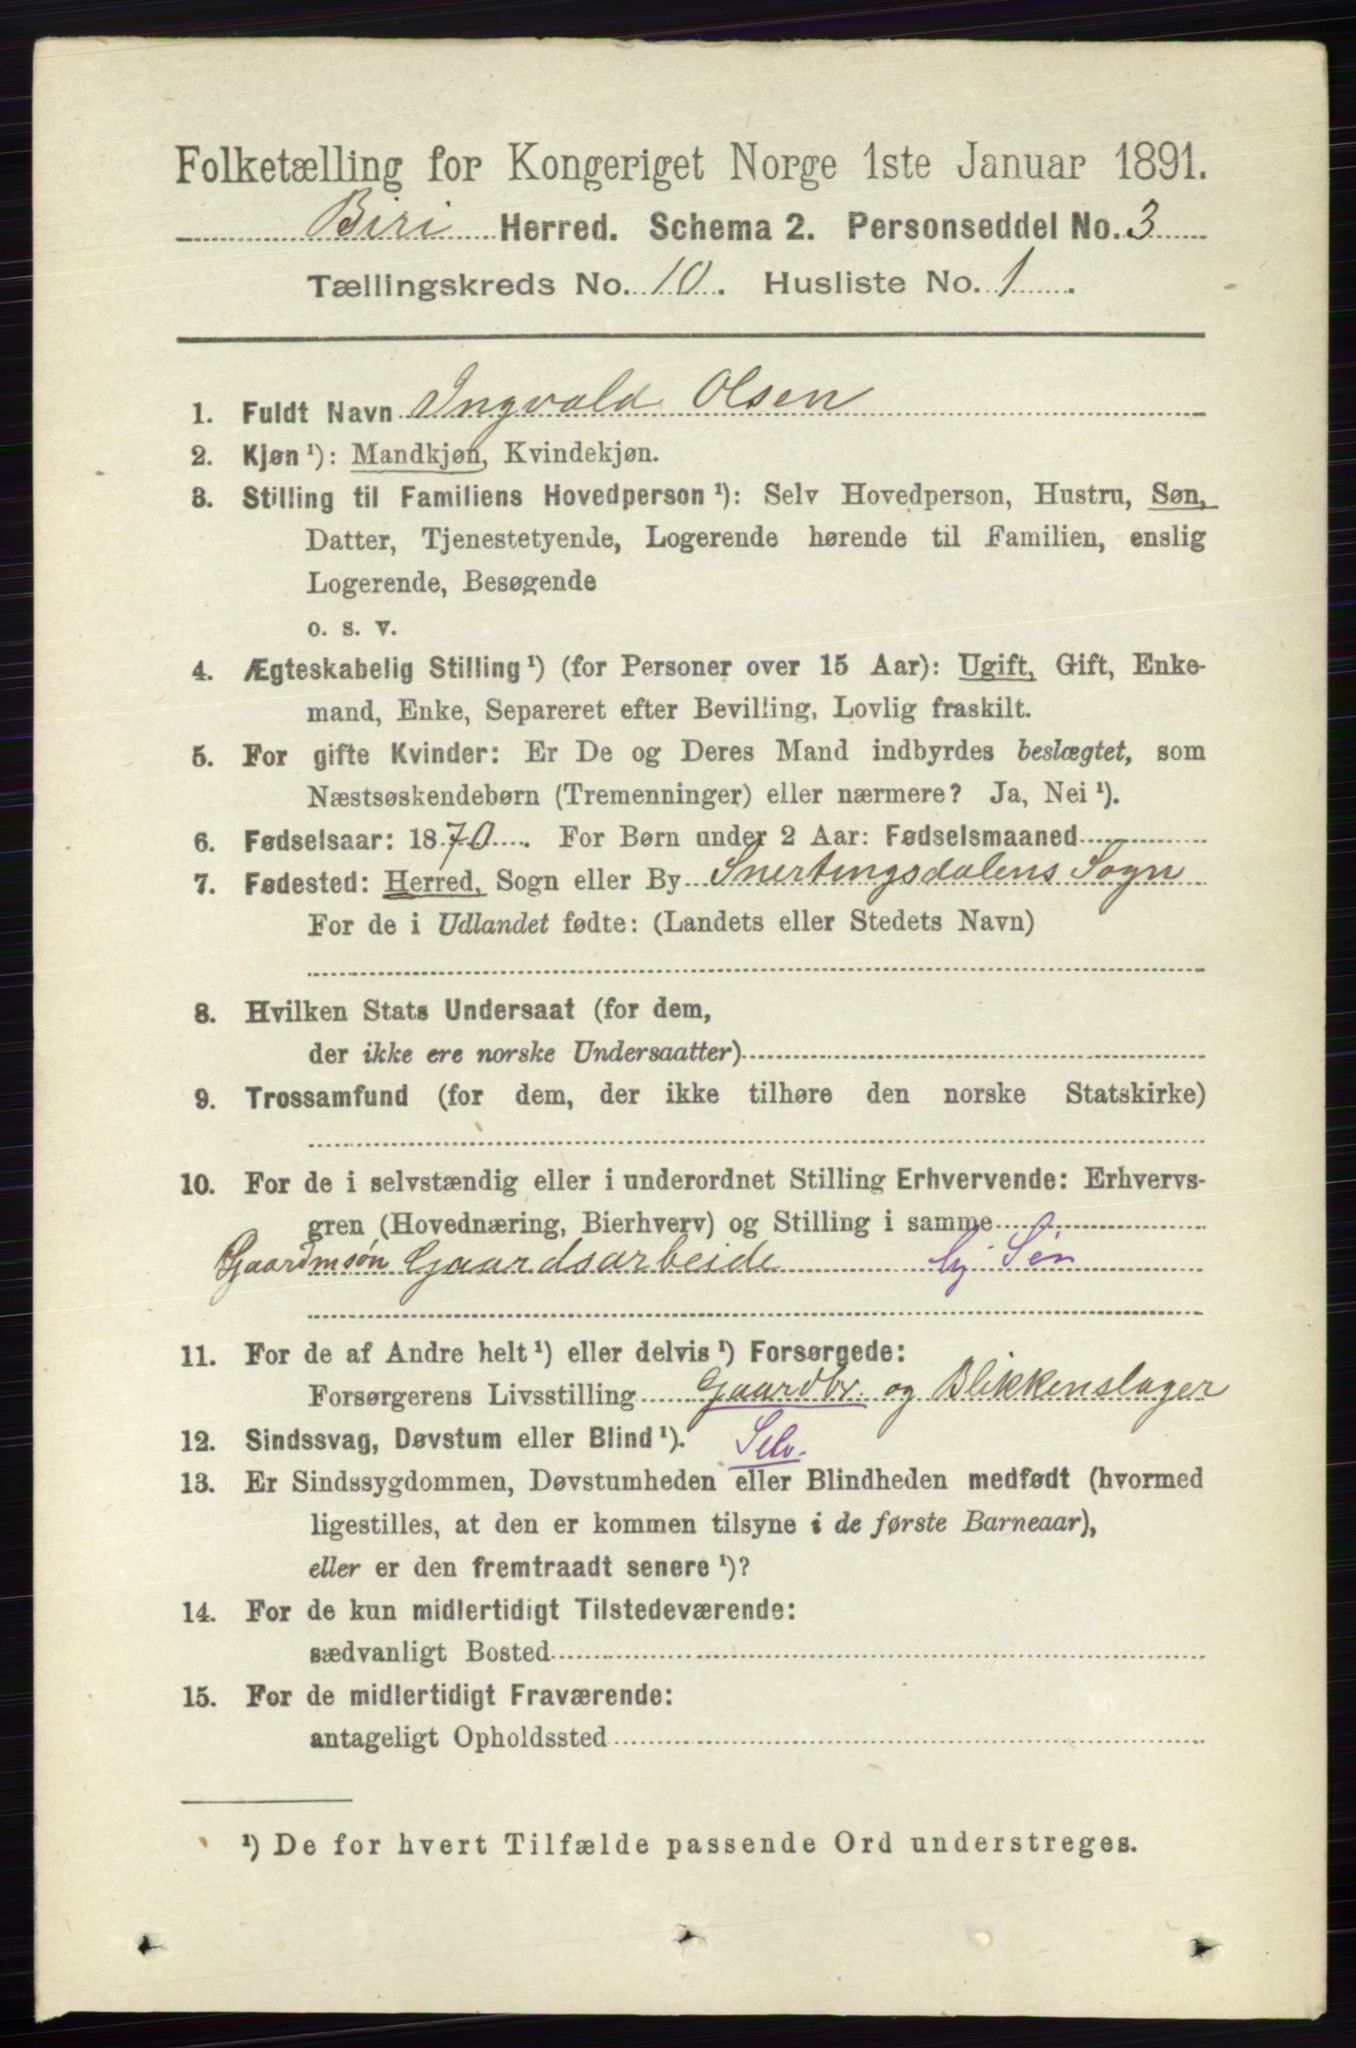 Folketælling for Kongeriget Norge 1ste Januar 1891.
Biri Herred. Schema 2. Personseddel No. 3
Tællingskreds No. 10. Husliste No. 1.
1. Fuldt Navn Ingvald Olsen
2. Kjøn¹): Mandkjøn, Kvindekjøn.
3. Stilling til Familiens Hovedperson¹): Selv Hovedperson, Hustru, Søn,
Datter, Tjenestetyende, Logerende hørende til Familien, enslig
Logerende, Besøgende
o. s. v.
4. Ægteskabelig Stilling¹) (for Personer over 15 Aar): Ugift, Gift, Enke-
mand, Enke, Separeret efter Bevilling, Lovlig fraskilt.
5. For gifte Kvinder: Er De og Deres Mand indbyrdes beslægtet, som
Næstsøskendebørn (Tremenninger) eller nærmere? Ja, Nei¹).
6. Fødselsaar: 1870. For Børn under 2 Aar: Fødselsmaaned
7. Fødested: Herred, Sogn eller By Snertingsdalens Sogn
For de i Udlandet fødte: (Landets eller Stedets Navn)
8. Hvilken Stats Undersaat (for dem,
der ikke ere norske Undersaatter)
9. Trossamfund (for dem, der ikke tilhøre den norske Statskirke)
10. For de i selvstændig eller i underordnet Stilling Erhvervende: Erhvervs-
gren (Hovednæring, Bierhverv) og Stilling i samme
Gaardmsøn Gaardsarbeide Søn
11. For de af Andre helt¹) eller delvis¹) Forsørgede:
Forsørgerens Livsstilling Gaardbr. og Blikkenslager
12. Sindssvag, Døvstum eller Blind¹). Selv.
13. Er Sindssygdommen, Døvstumheden eller Blindheden medfødt (hvormed
ligestilles, at den er kommen tilsyne i de første Barneaar),
eller er den fremtraadt senere¹)?
14. For de kun midlertidigt Tilstedeværende:
sædvanligt Bosted
15. For de midlertidigt Fraværende:
antageligt Opholdssted
¹) De for hvert Tilfælde passende Ord understreges.